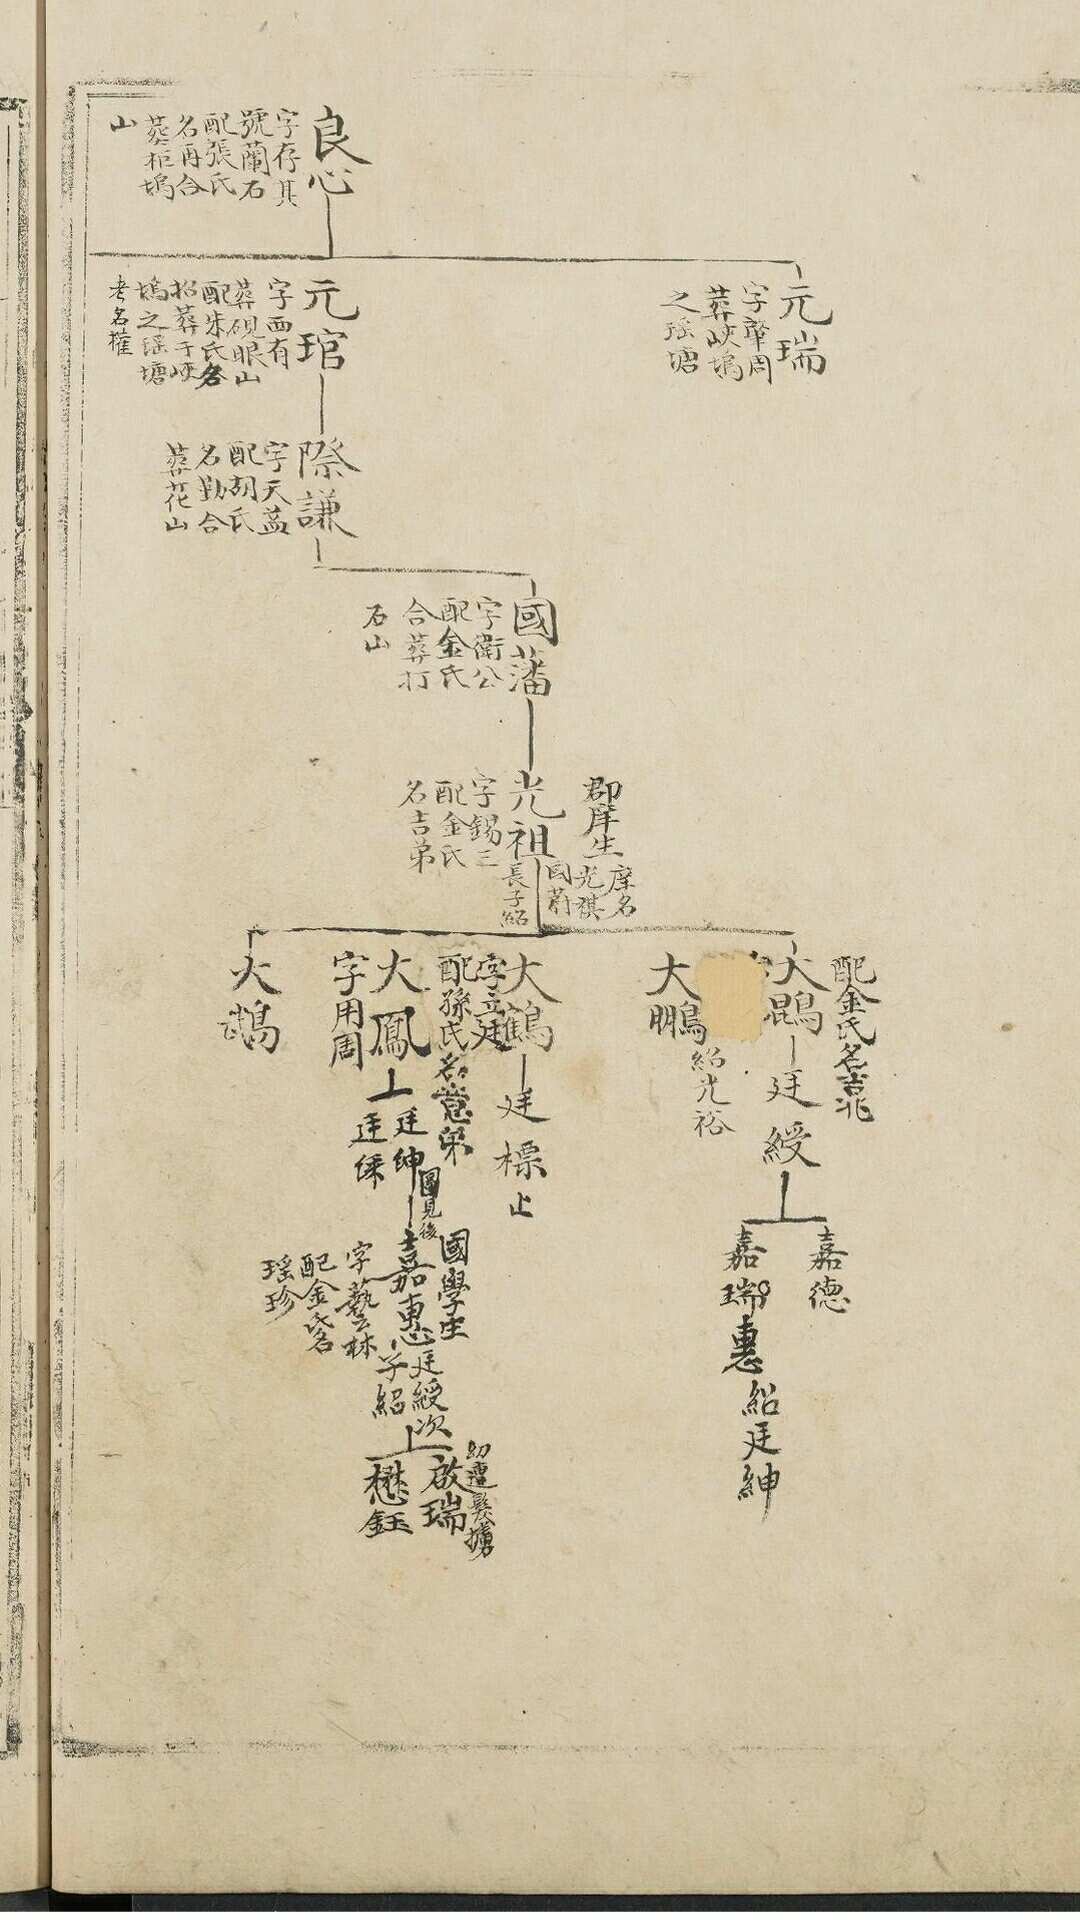 良心
字存其
號蘭石
配張氏
名再合
葬柜塢
山
元瑞
字肇周
葬峽塢
之瑶塘
元琯
字西有
葬硯眠山
配朱氏名
招葬于峽
塢之瑶塘
老名權
際謙
字天益
配胡氏
名勤合
葬花山
國藩
字衛公
配金氏
合葬打
石山
郡庠生
庠名
光祺
國蔚
光祖
字錫三
配金氏
名吉弟
長子紹
配金氏名吉兆
大鵾
廷綬
嘉德
嘉瑞
惠紹廷紳
大鵬
紹光裕
大鶴
字立廷
廷標
止
配孫氏名意弟
大鳳
字用周
廷紳
廷綵
圖見後
國學生
嘉惠
廷綬次
子紹
字藝林
配金氏名
瑶珍
幼遭髮擄
啟瑞
懋鈺
大鵡